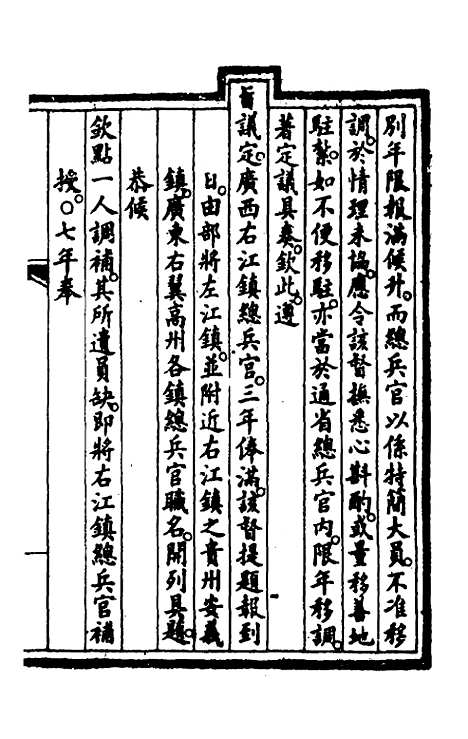 別年限報滿候升。而總兵官以係特簡大員。不准移
調。於情理未協。應令該督撫悉心斟酌。或量移善地
駐紮。如不便移駐。亦當於通省總兵官內。限年移調。
著定議具奏。欽此。遵
旨議定。廣西右江鎮總兵官。三年俸滿。該督提題報到
日。由部將左江鎮。並附近右江鎮之貴州安義
鎮。廣東右翼高州各鎮總兵官職名。開列具題。
恭候
欽點一人調補。其所遺員缺。即將右江鎮總兵官補
授。○七年奉